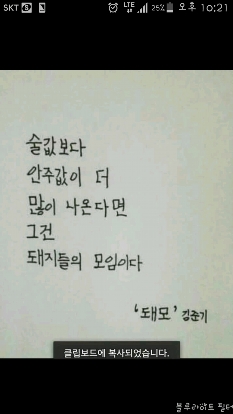 SKT LTE 25% 오후 10:21
술값보다
안주값이 더
많이 나온다면
그건
돼지들의 모임이다
'돼모' 김준기
클립보드에 복사되었습니다.
블루라이트 필터